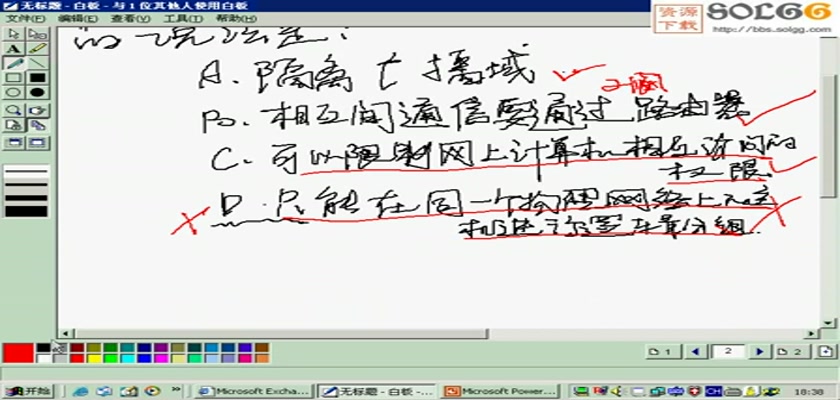 无标题 - 白板 - 与 1 位其他人使用白板
资源下载 SOLGG
http://bbs.solgg.com
文件(F) 编辑(E) 查看(V) 工具(T) 帮助(H)
的说法是:
A. 隔离广播域
2个网
B. 相互间通信要通过路由器
C. 可以限制网上计算机相互访问的
权限
D. 只能在同一个物理网络上
逻辑分组.
1 2 2
开始 Microsoft Excha... 无标题 - 白板 -... Microsoft Power... CH 18:38